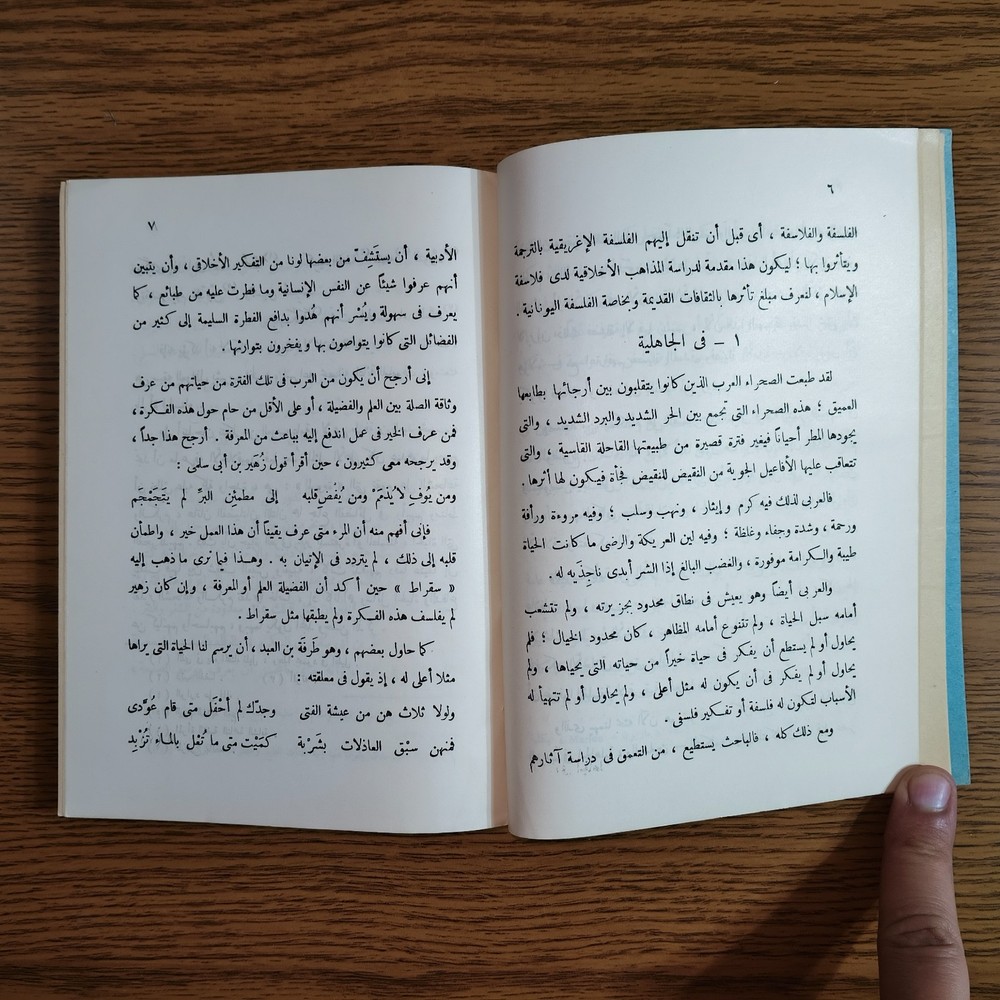 ٦
الفلسفة والفلاسفة ، أى قبل أن تنقل إليهم الفلسفة الإغريقية بالترجمة
ويتأثروا بها ؛ ليكون هذا مقدمة لدراسة المذاهب الأخلاقية لدى فلاسفة
الإسلام ، لنعرف مبلغ تأثرها بالثقافات القديمة وبخاصة الفلسفة اليونانية .
١ – فى الجاهلية
لقد طبعت الصحراء العرب الذين كانوا يتقلبون بين أرجائها بطابعها
العميق ؛ هذه الصحراء التى تجمع بين الحر الشديد والبرد الشديد ، والتى
يجودها المطر أحياناً فيغير فترة قصيرة من طبيعتها القاحلة القاسية ، والتى
تتعاقب عليها الأفاعيل الجوية من النقيض للنقيض فجأة فيكون لها أثرها .
فالعربى لذلك فيه كرم وإيثار ، ونهب وسلب ؛ وفيه مروءة ورأفة
ورحمة ، وشدة وجفاء وغلظة ؛ وفيه لين العريكة والرضى ما كانت الحياة
طيبة والكرامة موفورة ، والغضب البالغ إذا الشر أبدى ناجِذَيه له .
والعربى أيضاً وهو يعيش فى نطاق محدود بجزيرته ، ولم تتشعب
أمامه سبل الحياة ، ولم تتنوع أمامه المظاهر ، كان محدود الخيال ؛ فلم
يحاول أو لم يستطع أن يفكر فى حياة خيراً من حياته التى يحياها ، ولم
يحاول أو لم يفكر فى أن يكون له مثل أعلى ، ولم يحاول أو لم تتهيأ له
الأسباب لتكون له فلسفة أو تفكير فلسفى .
ومع ذلك كله ، فالباحث يستطيع ، من التعمق فى دراسة آثارهم
٧
الأدبية ، أن يستَشِفّ من بعضها لونا من التفكير الأخلاقى ، وأن يتبين
أنهم عرفوا شيئاً عن النفس الإنسانية وما فطرت عليه من طبائع ، كما
يعرف فى سهولة ويُسْر أنهم هُدوا بدافع الفطرة السليمة إلى كثير من
الفضائل التى كانوا يتواصون بها ويفخرون بتوارثها .
إنى أرجح أن يكون من العرب فى تلك الفترة من حياتهم من عرف
وثاقة الصلة بين العلم والفضيلة ، أو على الأقل من حام حول هذه الفكرة ،
فمن عرف الخير فى عمل اندفع إليه بباعث من المعرفة . أرجح هذا جداً ،
وقد يرجحه معى كثيرون ، حين أقرأ قول زُهَير بن أبى سلمى :
ومن يُوفِ لا يُذمَمْ ومن يُفْضِ قلبه إلى مطمئِن البرِّ لم يَتَجَمْجَم
فإنى أفهم منه أن المرء متى عرف يقيناً أن هذا العمل خير ، واطمأن
قلبه إلى ذلك ، لم يتردد فى الإتيان به . وهذا فيما ترى ما ذهب إليه
« سقراط » حين أكد أن الفضيلة العلم أو المعرفة ، وإن كان زهير
لم يفلسف هذه الفكرة ولم يطبقها مثل سقراط .
كما حاول بعضهم ، وهو طَرفَة بن العبد ، أن يرسم لنا الحياة التى يراها
مثلا أعلى له ، إذ يقول فى معلقته :
ولولا ثلاث هن من عيشة الفتى وجدّك لم أحْفَل متى قام عُوَّدى
فمنهن سبْق العاذلات بشَرْبة كمَيْت متى ما تُعْل بالماء تُزْبِد